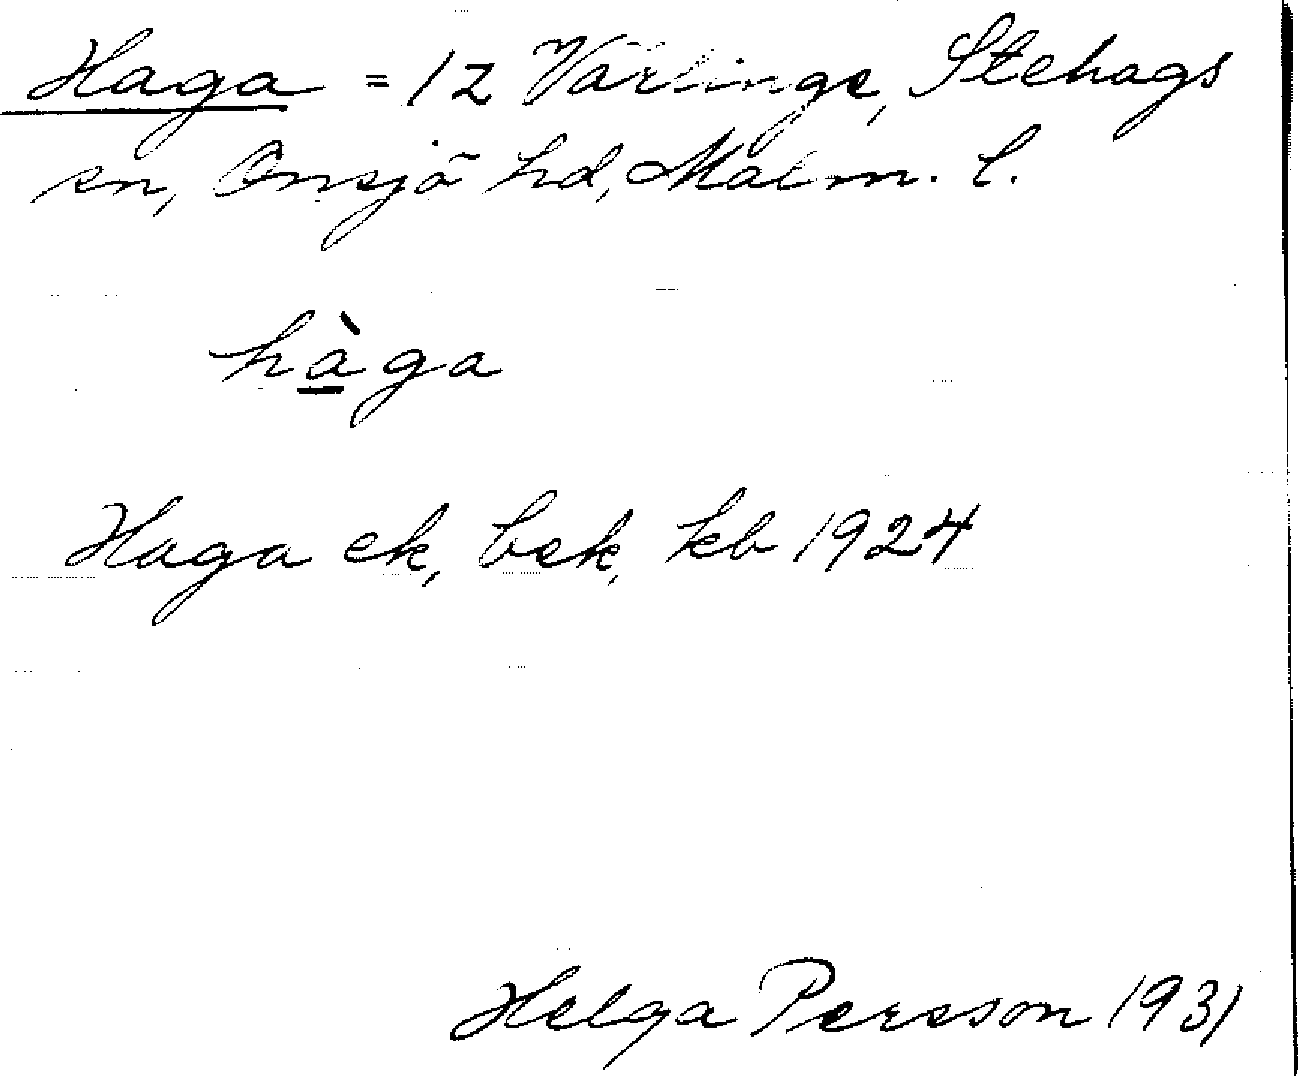 Haga = 12 Värlinge, Stehags
sn, Onsjö hd, Malm. l.
hàga
Haga ek, bek, kb 1924
Helga Persson 1931